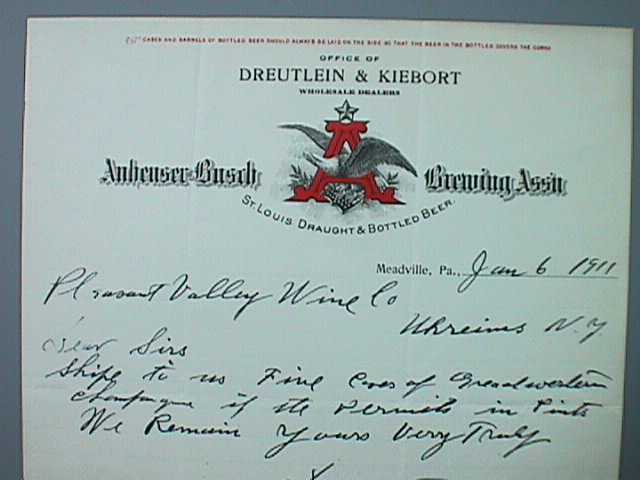 CASES AND BARRELS OF BOTTLED BEER SHOULD ALWAYS BE LAID ON THE SIDE SO THAT THE BEER IN THE BOTTLES COVERS THE CORKS
OFFICE OF
DREUTLEIN & KIEBORT
WHOLESALE DEALERS
A
Anheuser-Busch Brewing Ass'n
ST. LOUIS DRAUGHT & BOTTLED BEER.
Meadville, Pa., Jan 6 1911
Pleasant Valley Wine Co
Uhreims N.Y
Dear Sirs
Shipe to us Five Cases of Greadwestern
Champagne if the Permits in Pints
We Remain Yours Very Truly